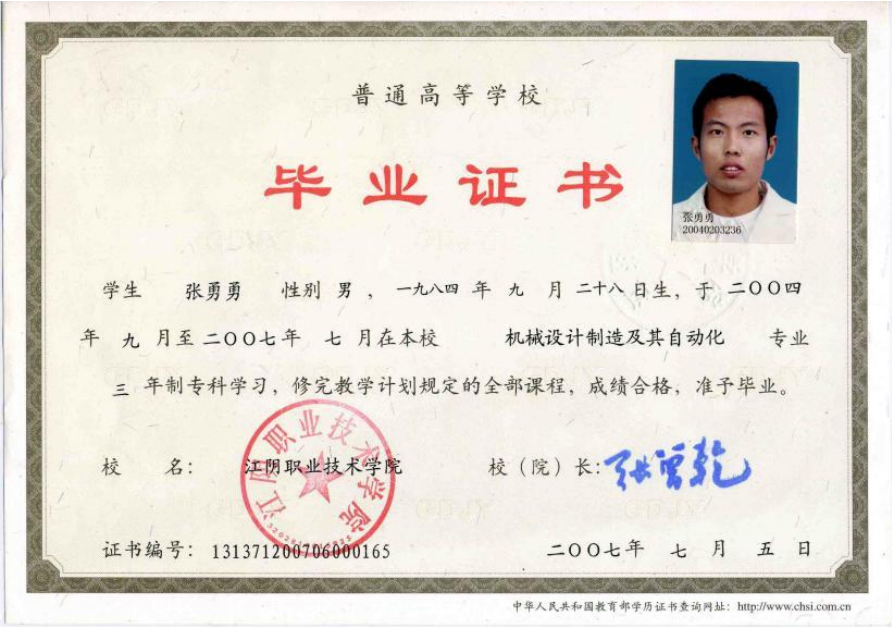 普通高等学校
毕业证书
张勇勇
20040203236
学生 张勇勇 性别 男 ，一九八四 年 九 月 二十八 日生，于 二〇〇四
年 九 月至 二〇〇七年 七 月在本校 机械设计制造及其自动化 专业
三 年制专科学习，修完教学计划规定的全部课程，成绩合格，准予毕业。
江阴职业技术学院
校 名： 江阴职业技术学院 校（院）长：张曾乾
证书编号：131371200706000165 二〇〇七年 七 月 五 日
中华人民共和国教育部学历证书查询网址：http://www.chsi.com.cn